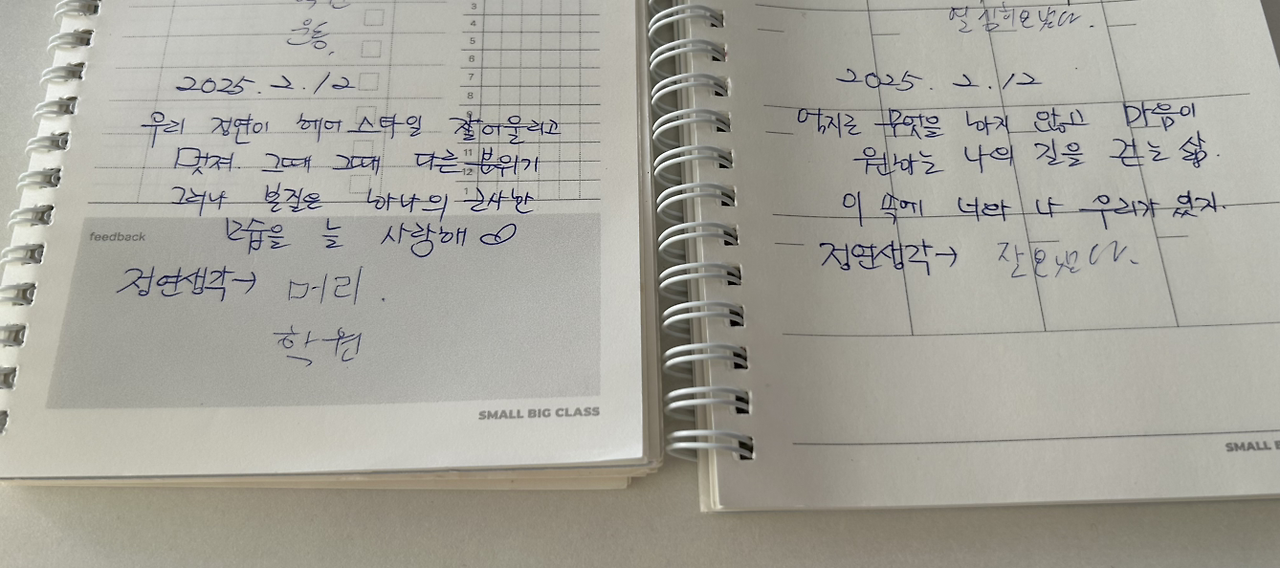 운동.
2025. 2. 12
우리 정연이 헤어 스타일 잘어울리고
멋져. 그때 그때 다른 분위기
그러나 본질은 하나의 근사한
모습을 늘 사랑해
feedback
정연생각→ 머리.
학원
SMALL BIG CLASS
3
4
5
6
7
8
11
12
1
2025. 2. 12
억지로 무엇을 하지 않고 마음이
원하는 나의 길을 걷는 삶.
이 속에 너와 나 우리가 있지.
정연생각→
SMALL B